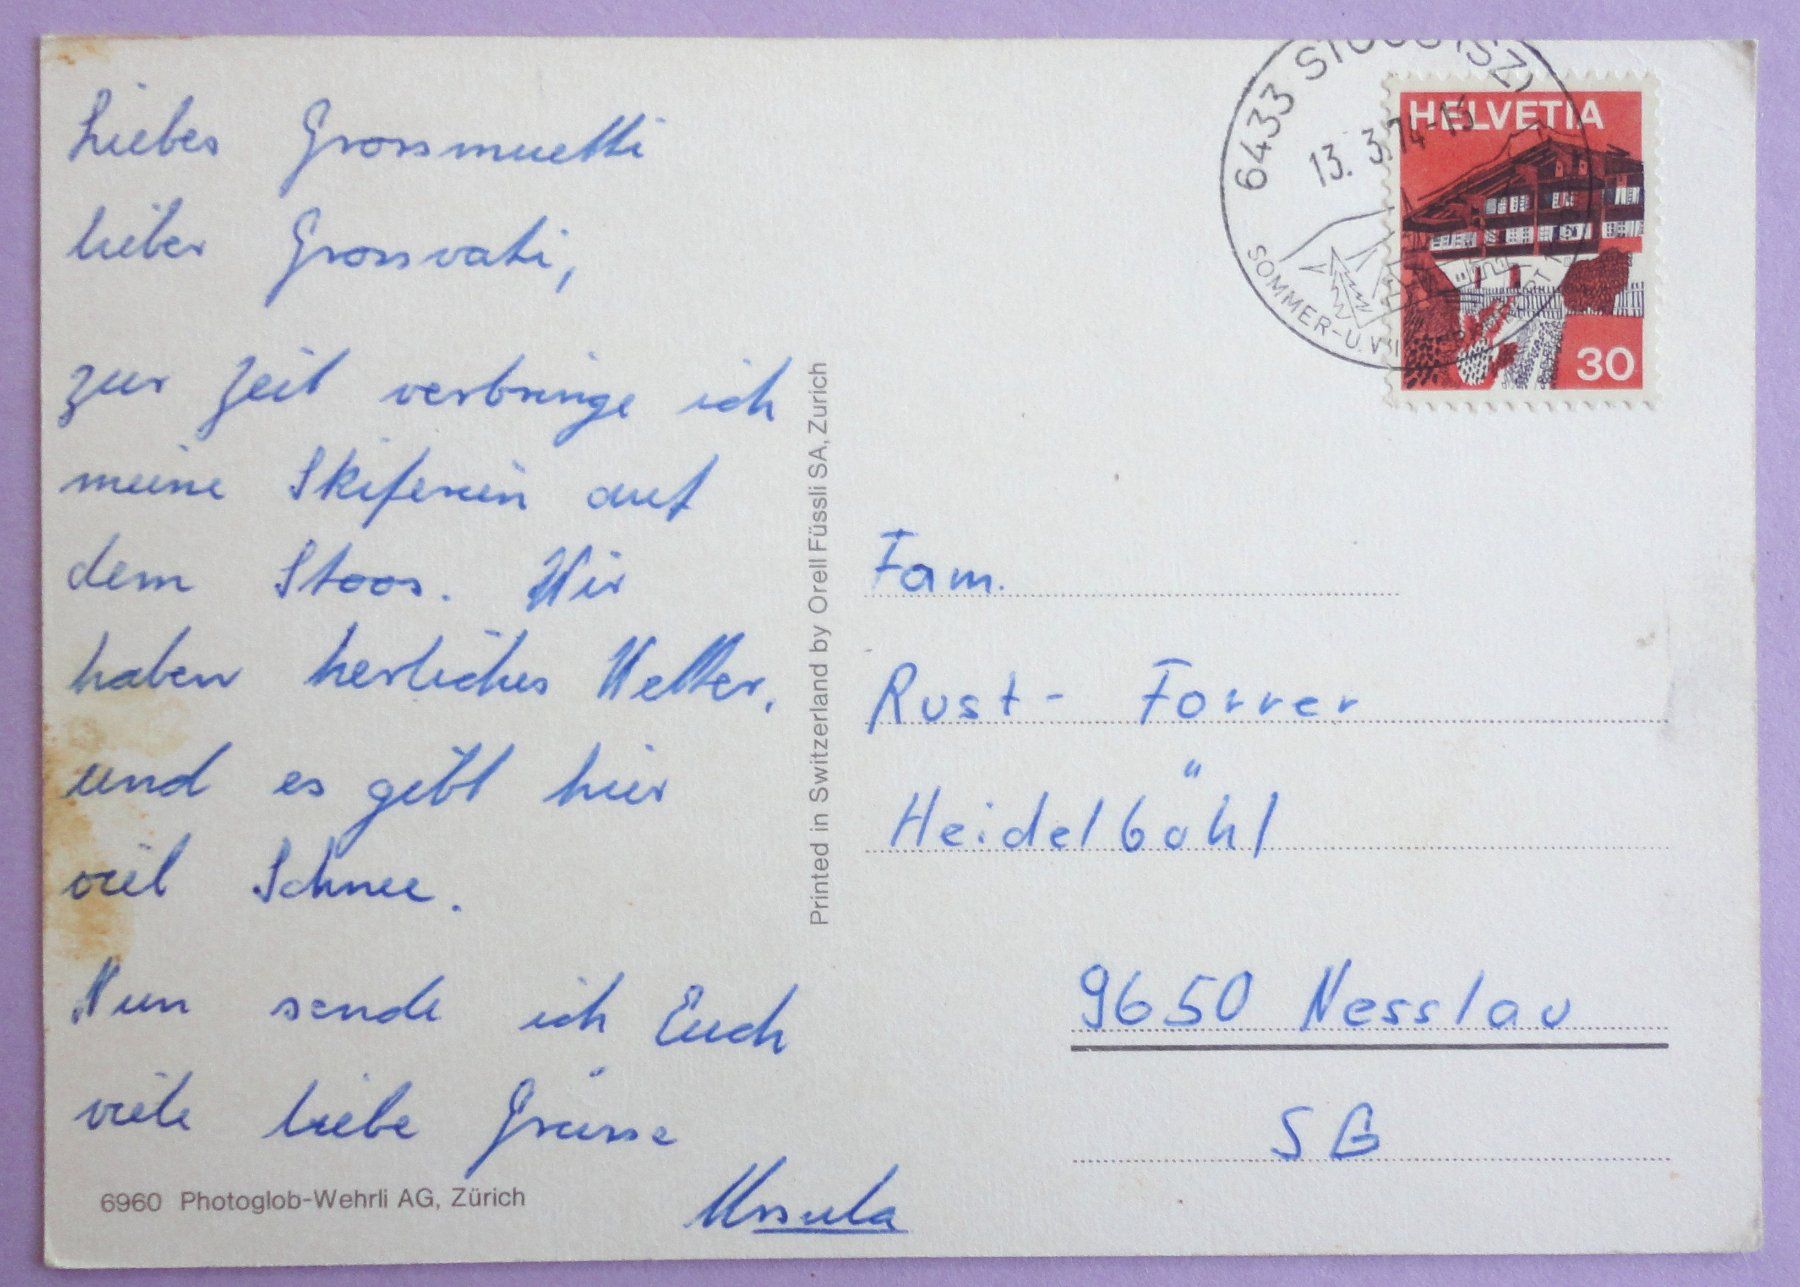 Liebes Grossmuetti
lieber Grossvati,
zur Zeit verbringe ich
meine Skiferien auf
dem Stoos. Wir
haben herliches Wetter,
und es gibt hier
viel Schnee.
Nun sende ich Euch
viele liebe Grüsse
Ursula
6960 Photoglob-Wehrli AG, Zürich
Printed in Switzerland by Orell Füssli SA, Zürich
6433 STOOS (SZ)
13. 3. 74-15
SOMMER-U. WINTER
HELVETIA
30
Fam.
Rust- Forrer
Heidelböhl
9650 Nesslau
SG